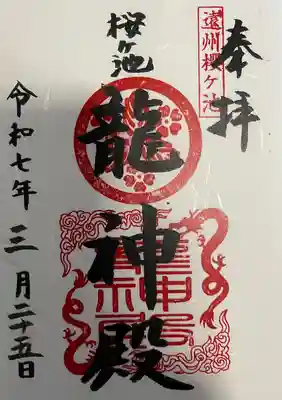 奉拝
遠州桜ヶ池
桜ヶ池
龍神殿
令和七年三月二十五日